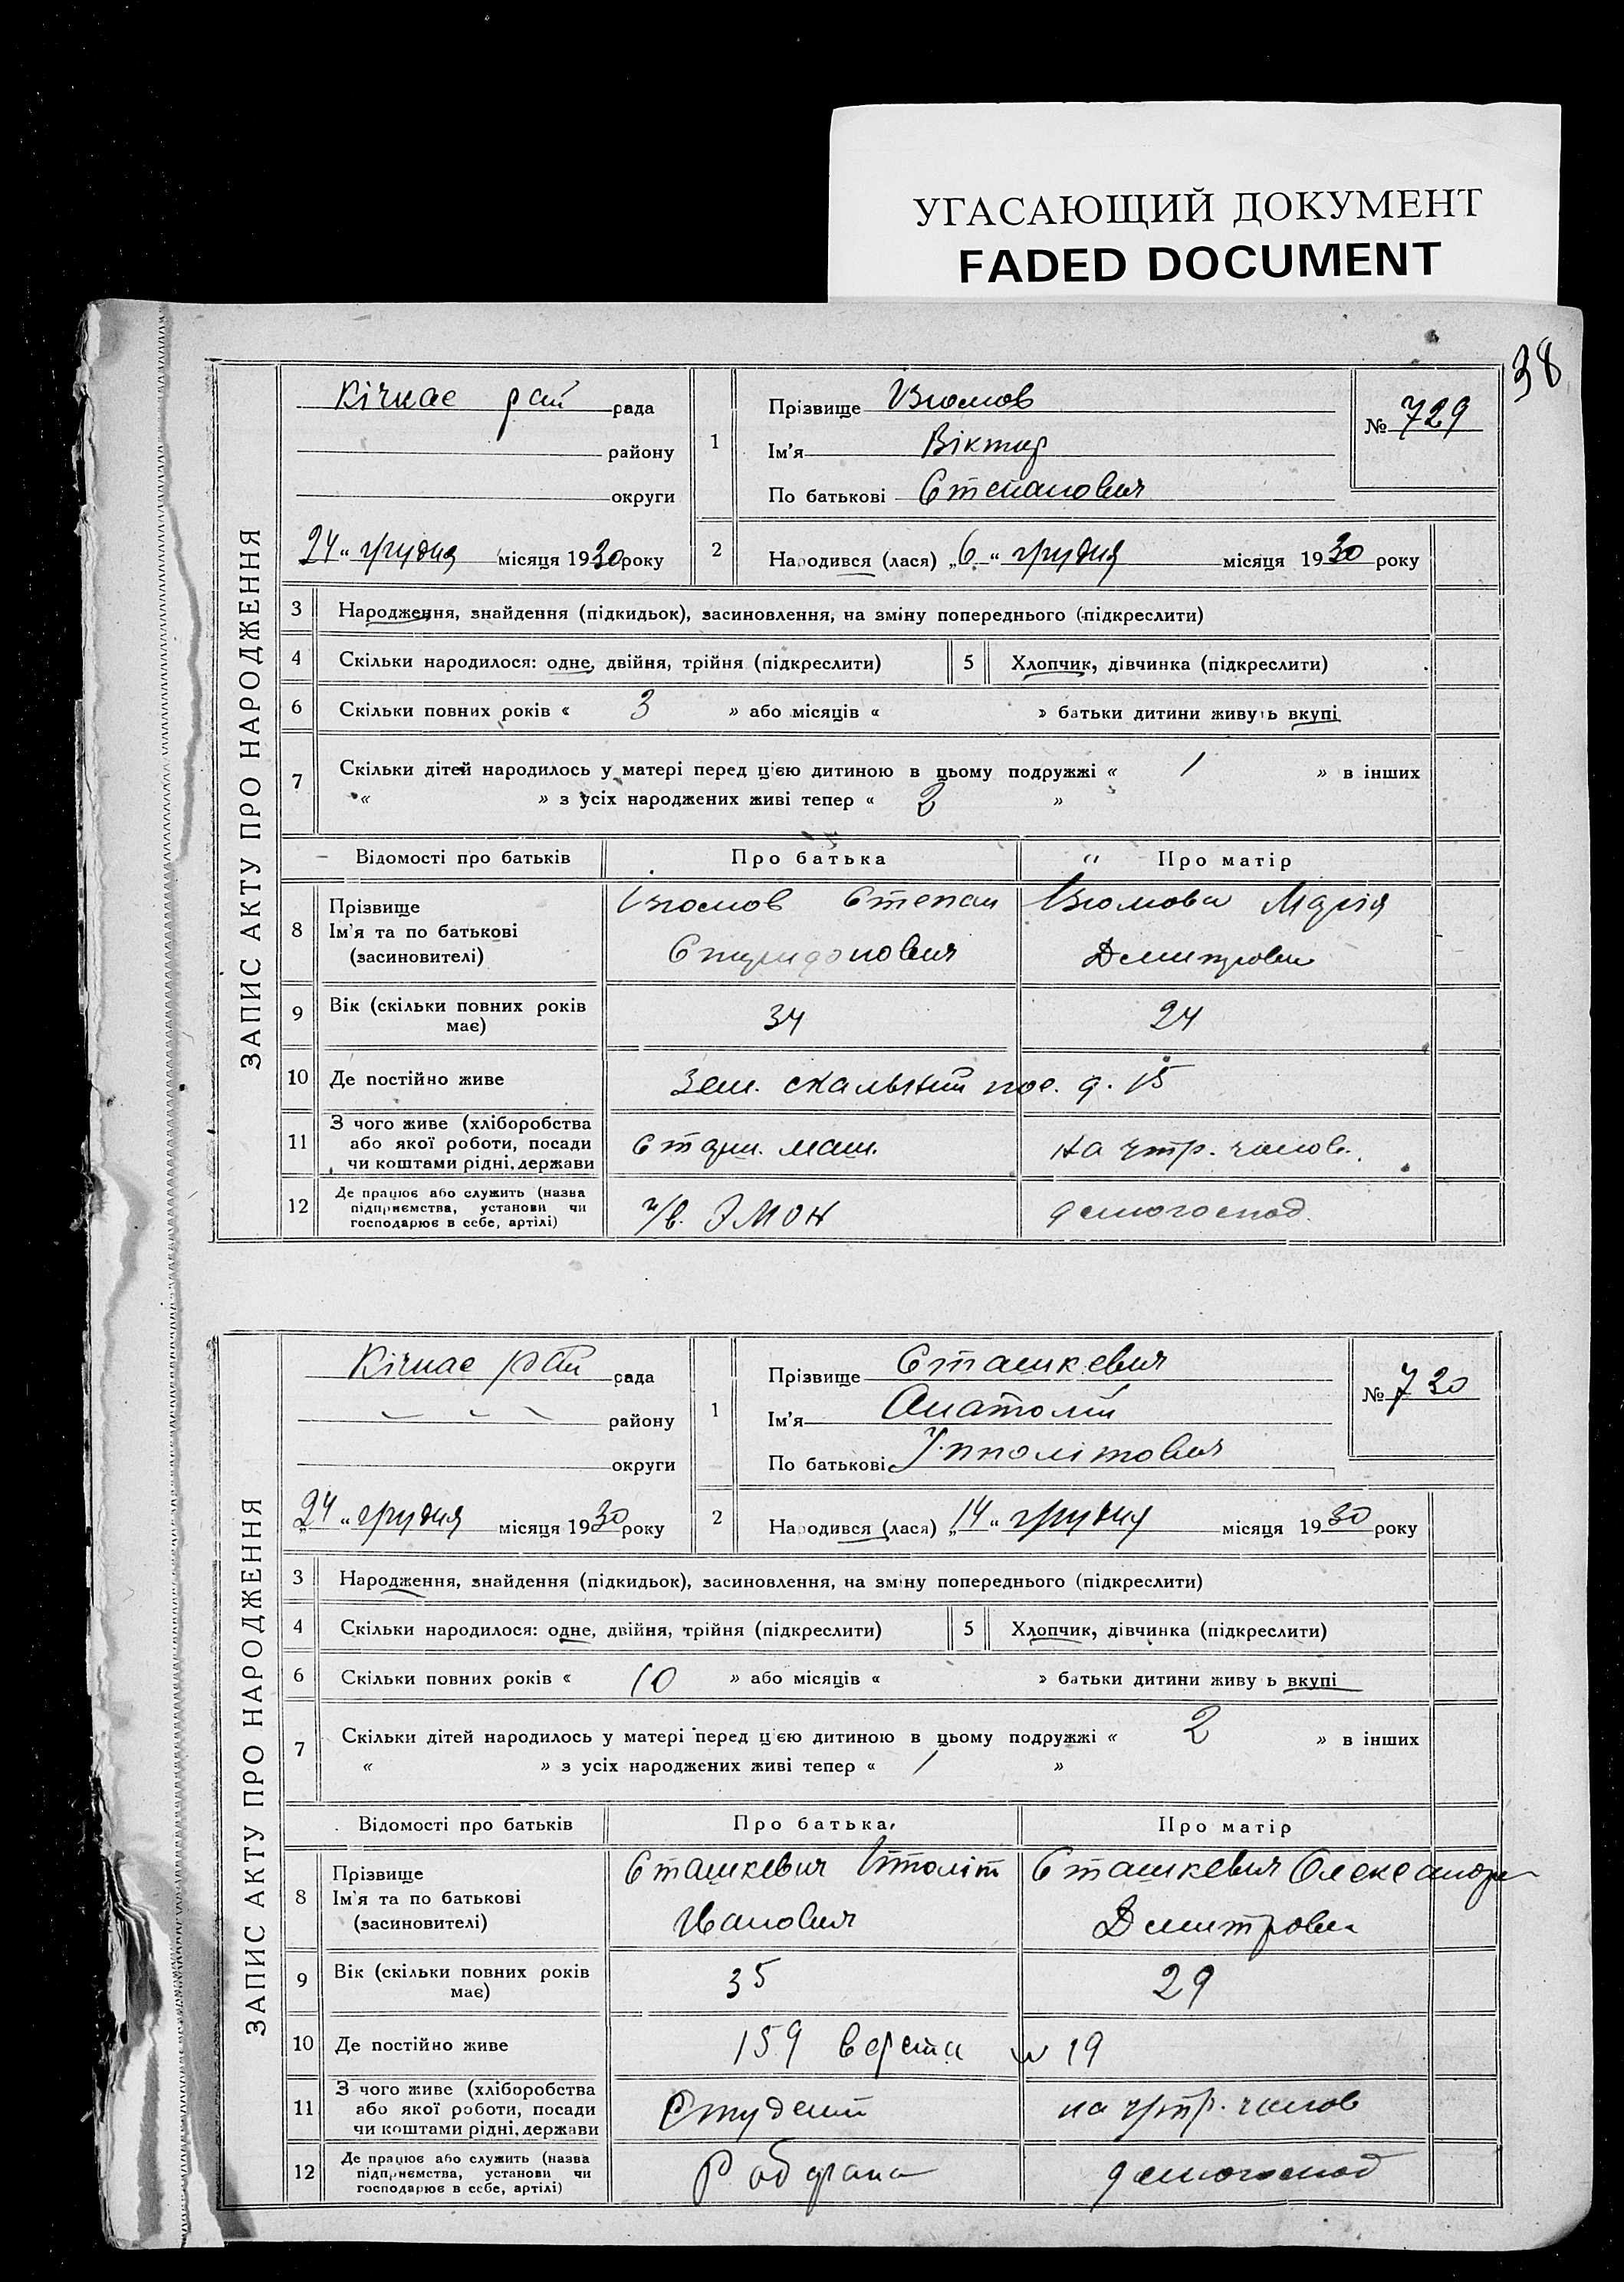 УГАСАЮЩИЙ ДОКУМЕНТ
FADED DOCUMENT
38
ЗАПИС АКТУ ПРО НАРОДЖЕННЯ
Кічкас рай рада
району
округи
24 " грудня місяця 1930 року
1
Прізвище Ізюмов
Ім'я Віктор
По батькові Степанович
№ 729
2
Народився (лася) „6 " грудня місяця 1930 року
3 Народження, знайдення (підкидьок), засиновлення, на зміну попереднього (підкреслити)
4 Скільки народилося: одне, двійня, трійня (підкреслити) 5 Хлопчик, дівчинка (підкреслити)
6 Скільки повних років « 3 » або місяців « » батьки дитини живуть вкупі
7 Скільки дітей народилось у матері перед цією дитиною в цьому подружжі « 1 » в інших
« » з усіх народжених живі тепер « 2 »
Відомості про батьків Про батька Про матір
8 Прізвище
Ім'я та по батькові
(засиновителі)
Ізюмов Степан
Спиридонович
Ізюмова Марія
Дмитровна
9 Вік (скільки повних років
має)
34 24
10 Де постійно живе
Зем. скальный пос. д. 15
11 З чого живе (хліборобства
або якої роботи, посади
чи коштами рідні, держави
Старш. маш.
на утр. чолов.
12 Де працює або служить (назва
підприємства, установи чи
господарює в себе, артілі)
домогоспод.
ЗАПИС АКТУ ПРО НАРОДЖЕННЯ
Кічкас рай рада
району
округи
24 " грудня місяця 1930 року
1
Прізвище Сташкевич
Ім'я Анатолій
По батькові Іпполітович
№ 730
2
Народився (лася) „14 " грудня місяця 1930 року
3 Народження, знайдення (підкидьок), засиновлення, на зміну попереднього (підкреслити)
4 Скільки народилося: одне, двійня, трійня (підкреслити) 5 Хлопчик, дівчинка (підкреслити)
6 Скільки повних років « 10 » або місяців « » батьки дитини живу ь вкупі
7 Скільки дітей народилось у матері перед цією дитиною в цьому подружжі « 2 » в інших
« » з усіх народжених живі тепер « 1 »
Відомості про батьків Про батька Про матір
8 Прізвище
Ім'я та по батькові
(засиновителі)
Сташкевич Іпполіт
Иванович
Сташкевич Олександра
Дмитровна
9 Вік (скільки повних років
має)
35 29
10 Де постійно живе
159 верста № 19
11 З чого живе (хліборобства
або якої роботи, посади
чи коштами рідні, держави
Студент
на утр. чолов
12 Де працює або служить (назва
підприємства, установи чи
господарює в себе, артілі)
домогоспод